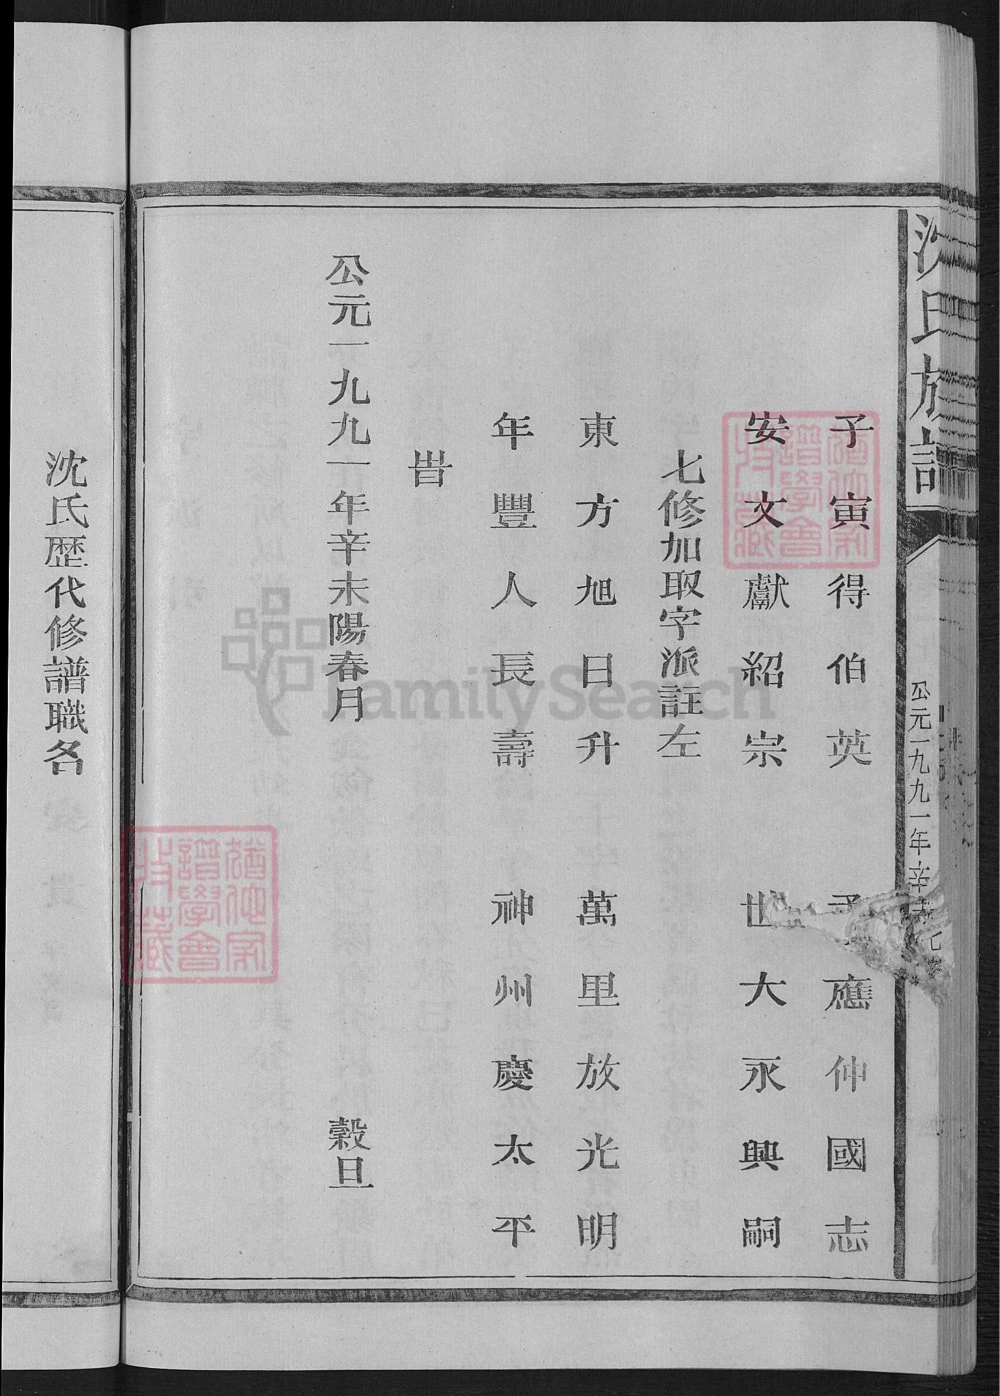 沈氏族譜
公元一九九一年辛未
子寅得伯英 予應仲國志
安文獻紹宗 世大永興嗣
七修加取字派註左
東方旭日升 萬里放光明
年豐人長壽 神州慶太平
旹
公元一九九一年辛未陽春月 穀旦
沈氏歷代修譜職名
FamilySearch
譜學會
收藏
譜學會
收藏